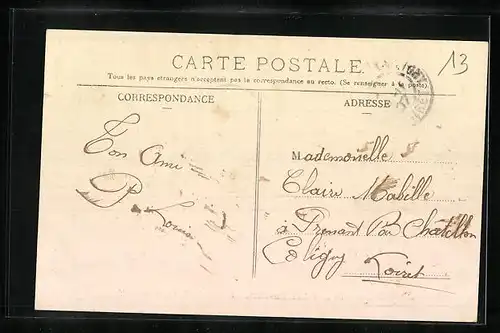 CARTE POSTALE
13
Tous les pays étrangers n'acceptent pas la correspondance au recto. (Se renseigner à la poste).
CORRESPONDANCE
ADRESSE
Ton Ami
P.
Mademoiselle
Claire Mabille
à Par Châtillon
Coligny Loiret